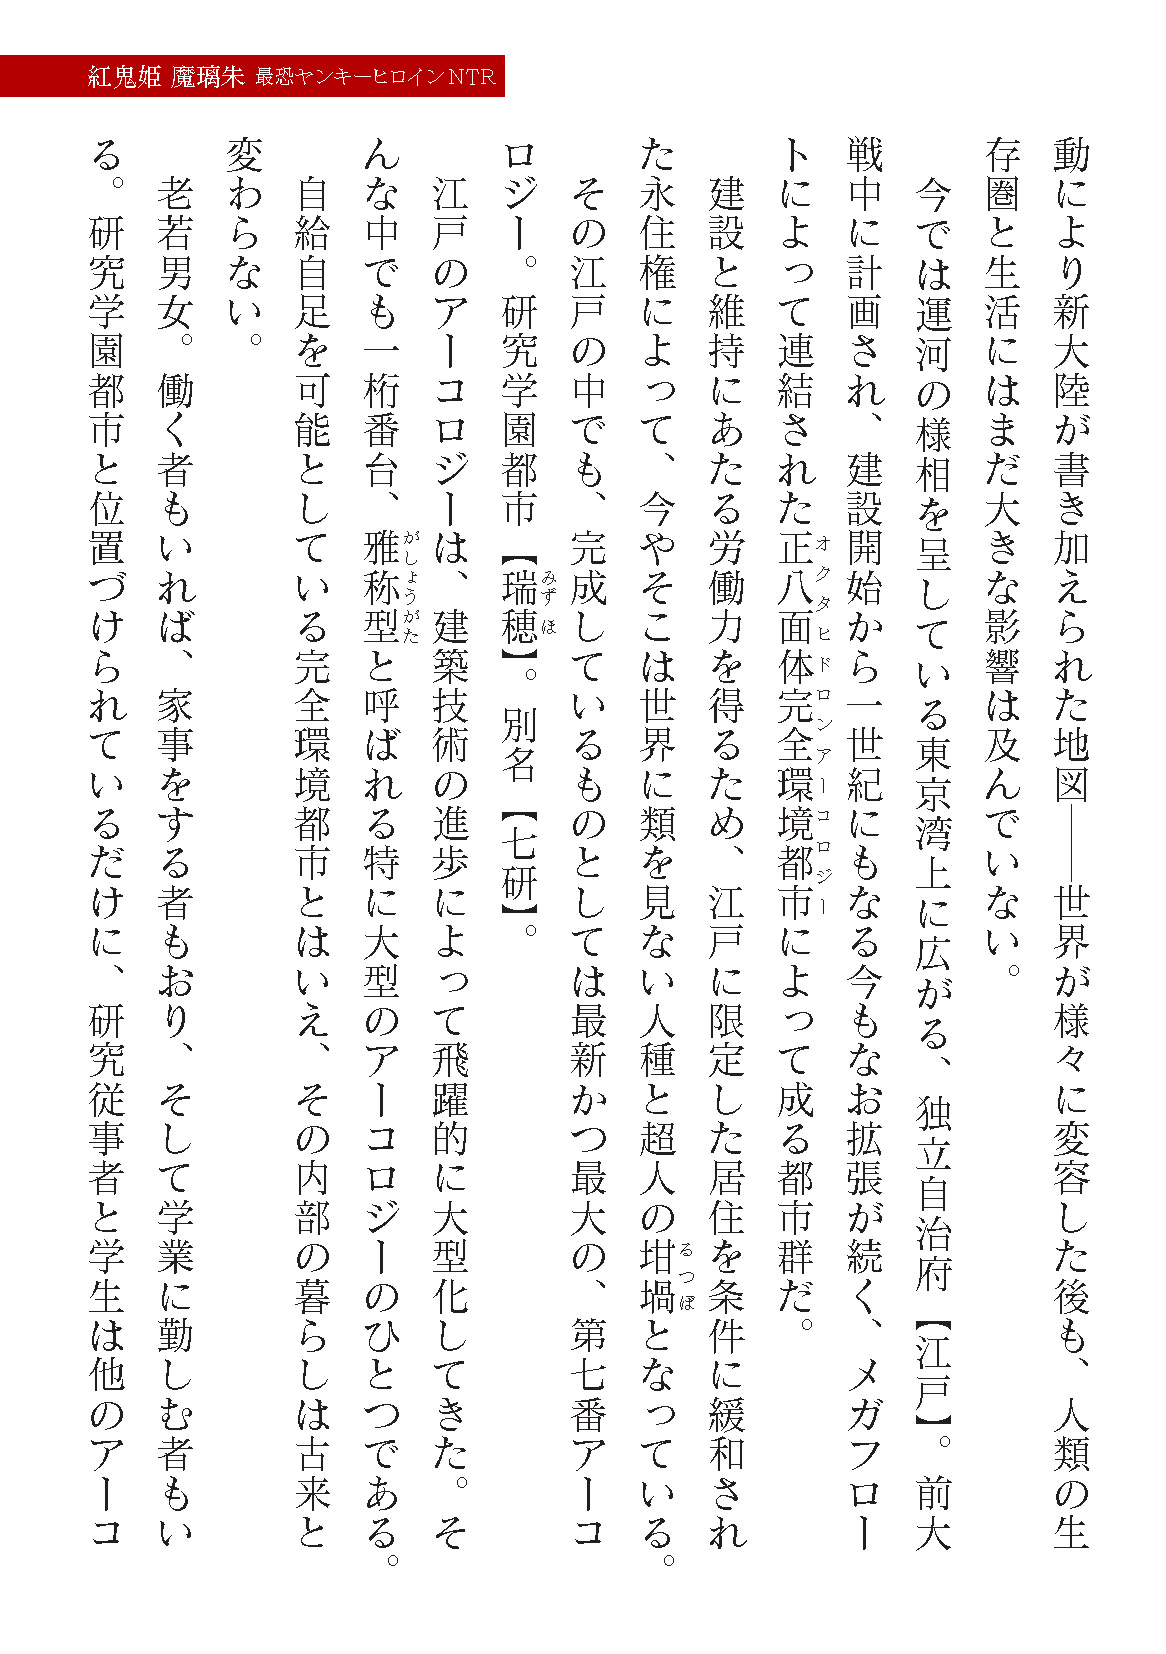 紅鬼姫 魔璃朱 最恐ヤンキーヒロインNTR
動により新大陸が書き加えられた地図――世界が様々に変容した後も、人類の生
存圏と生活にはまだ大きな影響は及んでいない。
今では運河の様相を呈している東京湾上に広がる、独立自治府【江戸】。前大
戦中に計画され、建設開始から一世紀にもなる今もなお拡張が続く、メガフロー
トによって連結された正八面体完全環境都市によって成る都市群だ。
オクタヒドロンアーコロジー
建設と維持にあたる労働力を得るため、江戸に限定した居住を条件に緩和され
た永住権によって、今やそこは世界に類を見ない人種と超人の坩堝となっている。
るつぼ
その江戸の中でも、完成しているものとしては最新かつ最大の、第七番アーコ
ロジー。研究学園都市【瑞穂】。別名【七研】。
みずほ
江戸のアーコロジーは、建築技術の進歩によって飛躍的に大型化してきた。そ
んな中でも一桁番台、雅称型と呼ばれる特に大型のアーコロジーのひとつである。
がしょうがた
自給自足を可能としている完全環境都市とはいえ、その内部の暮らしは古来と
変わらない。
老若男女。働く者もいれば、家事をする者もおり、そして学業に勤しむ者もい
る。研究学園都市と位置づけられているだけに、研究従事者と学生は他のアーコ